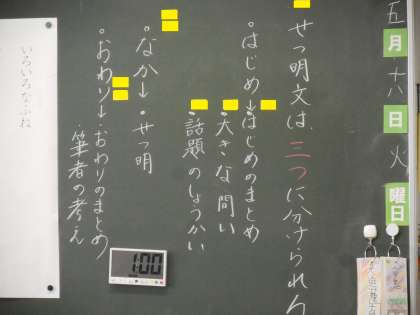 五月十八日火曜日
せつ明文は、三つに分けられ
・はじめ→・はじめのまとめ
・大きな問い
・話題のしょうかい
・なか→・せつ明
・おわり→・おわりのまとめ
・筆者の考え
いろいろなふね
1:00